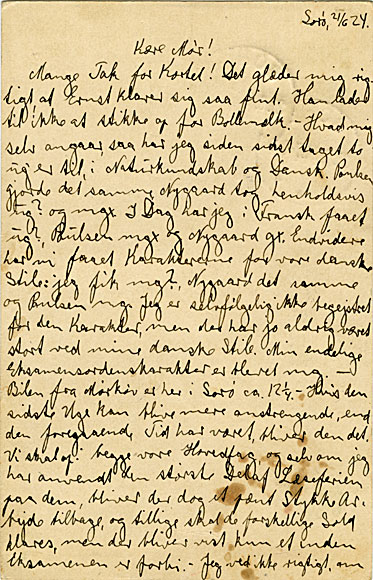 Sorø, 21/6 24.
Kære Mor!
Mange Tak for Kortet! Det glæder mig rig-
tigt, at Ernst klarer sig saa fint. Han lader
til ikke at stikke op for Bollemælk. – Hvad mig
selv angaar, saa har jeg siden sidst taget to
ug'er til, i Naturkundskab og Dansk. Poulsen
gjorde det samme, Nygaard tog henholdsvis
mg? og mgx. I Dag har jeg i Fransk faaet
ug?, Poulsen mgx og Nygaard gx. Endvidere
har vi faaet Karaktererne for vore danske
Stile: jeg fik mg?, Nygaard det samme
og Poulsen mg. Jeg er selvfølgelig ikke begejstret
for den Karakter, men det har jo aldrig været
stort ved mine danske Stile. Min endelige
Eksamensordenskarakter er blevet mg. –
Bilen fra Mørkøv er her i Sorø ca. 12¼. – Hvis den
sidste Uge kan blive mere anstrengende, end
den foregaaende Tid har været, bliver den det.
Vi skal op i begge vore Hovedfag, og selv om jeg
har anvendt den største Del af Læseferien
paa dem, bliver der dog et pænt Stykke Ar-
bejde tilbage, og tillige skal de forskellige
klares, men der bliver vist kun et inden
Eksamenen er forbi. – Jeg ved ikke rigtigt, om